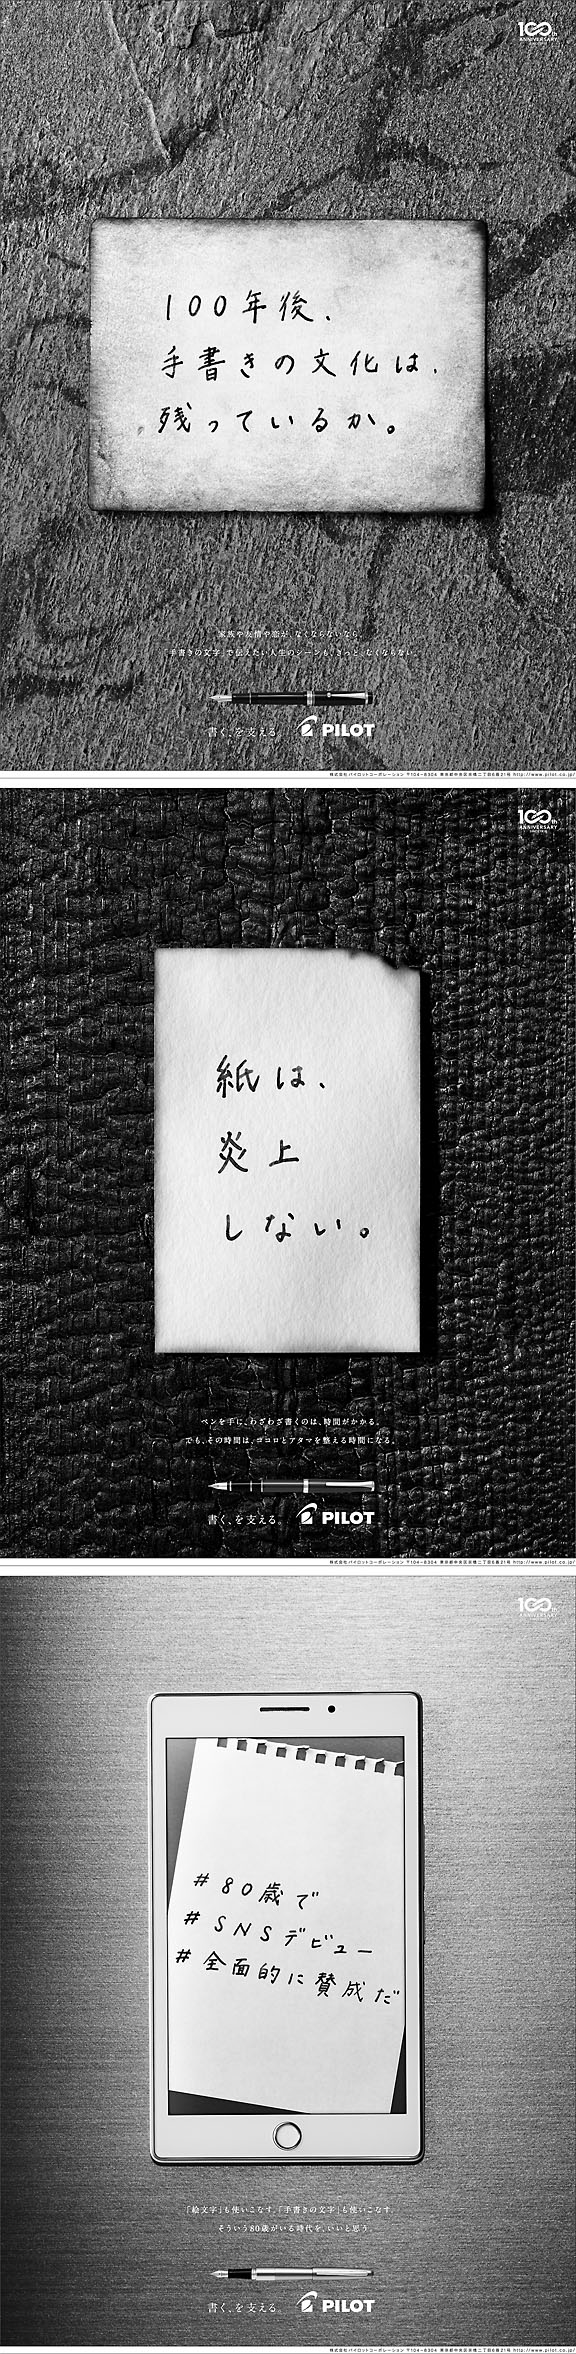 100th
ANNIVERSARY
100年後、
手書きの文化は、
残っているか。
家族や友情や恋が、なくならないなら
手書きの文字 で伝えたい人生のシーンも、きっと、なくならない。
書く、を支える。
PILOT
株式会社パイロットコーポレーション 〒104-8304 東京都中央区京橋二丁目6番21号 http://www.pilot.co.jp/
100th
ANNIVERSARY
紙は、
炎上
しない。
ペンを手に、わざわざ書くのは、時間がかかる。
でも、その時間は、ココロとアタマを整える時間になる。
書く、を支える。
PILOT
株式会社パイロットコーポレーション 〒104-8304 東京都中央区京橋二丁目6番21号 http://www.pilot.co.jp/
100th
ANNIVERSARY
#80歳で
#SNSデビュー
#全面的に賛成だ
「絵文字」も使いこなす。「手書きの文字」も使いこなす。
そういう80歳がいる時代を、いいと思う。
書く、を支える。
PILOT
株式会社パイロットコーポレーション 〒104-8304 東京都中央区京橋二丁目6番21号 http://www.pilot.co.jp/